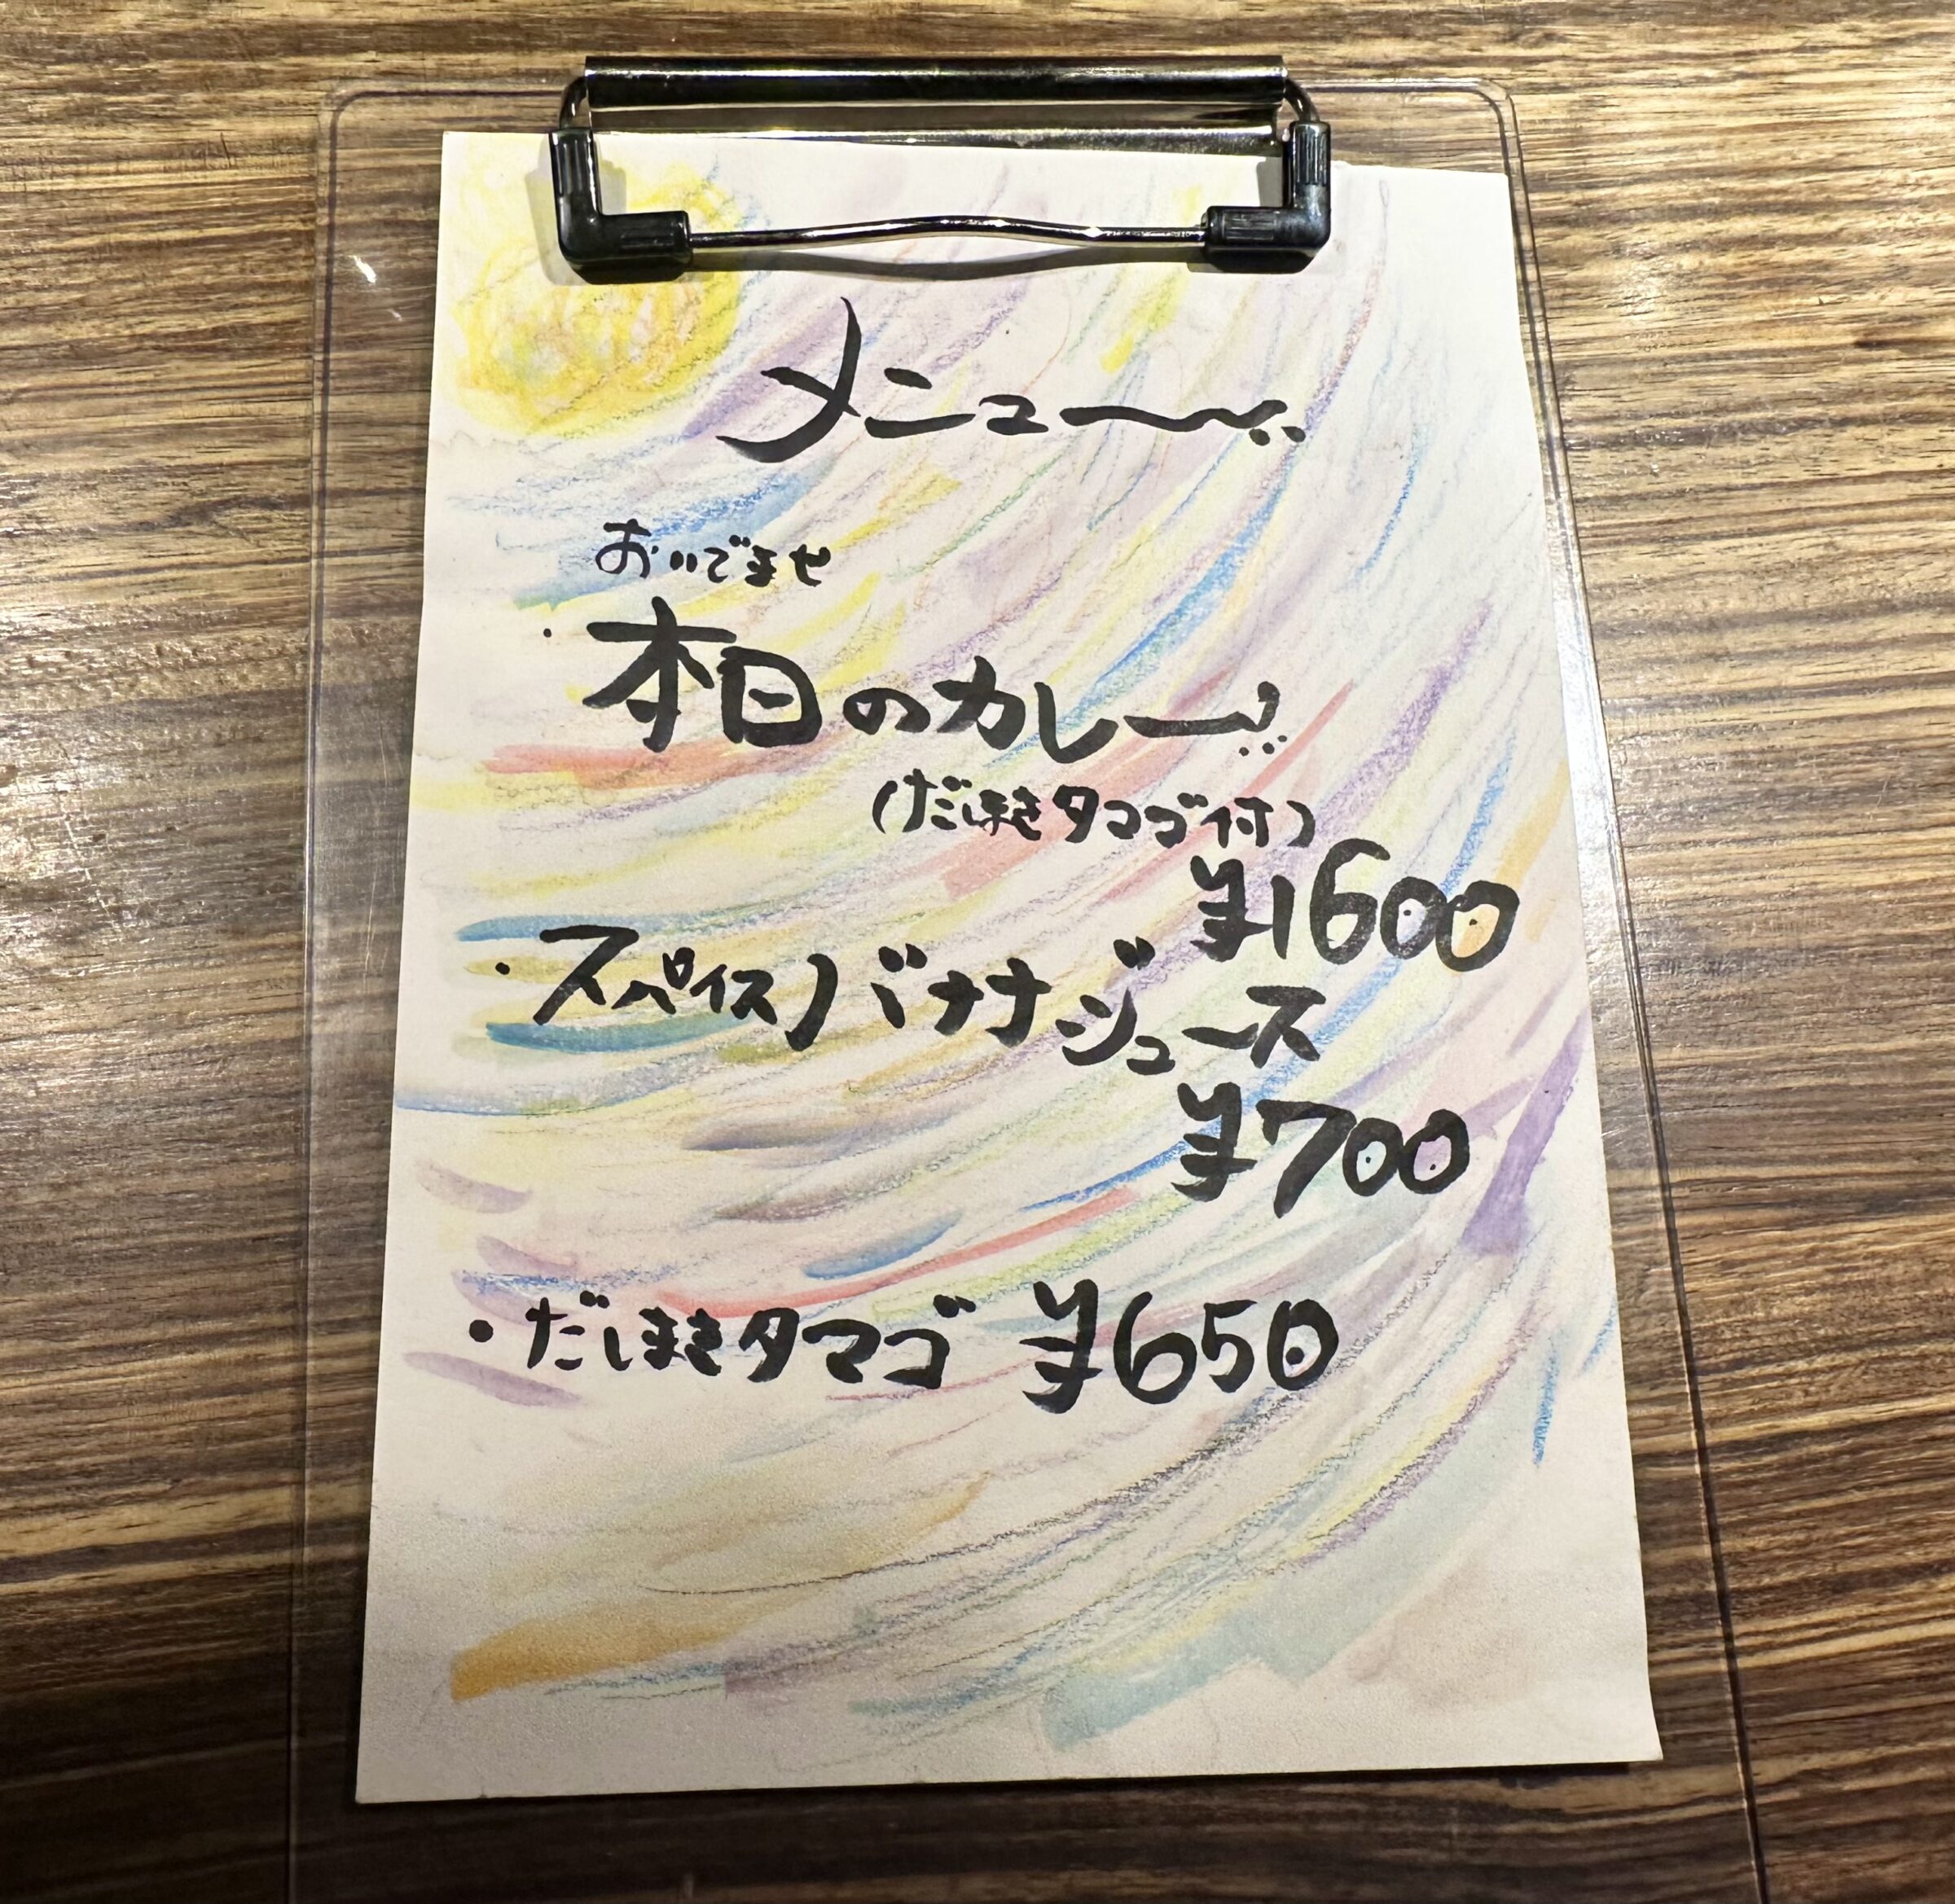 メニュー〜
おいでませ
・本日のカレー
(だしまきタマゴ付)
¥1600
・スパイスバナナジュース
¥700
・だしまきタマゴ ¥650